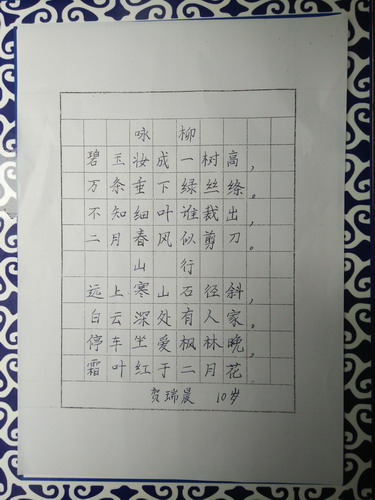 咏 柳
碧玉妆成一树高，
万条垂下绿丝绦。
不知细叶谁裁出，
二月春风似剪刀。
山 行
远上寒山石径斜，
白云深处有人家。
停车坐爱枫林晚，
霜叶红于二月花。
贺瑞晨 10岁